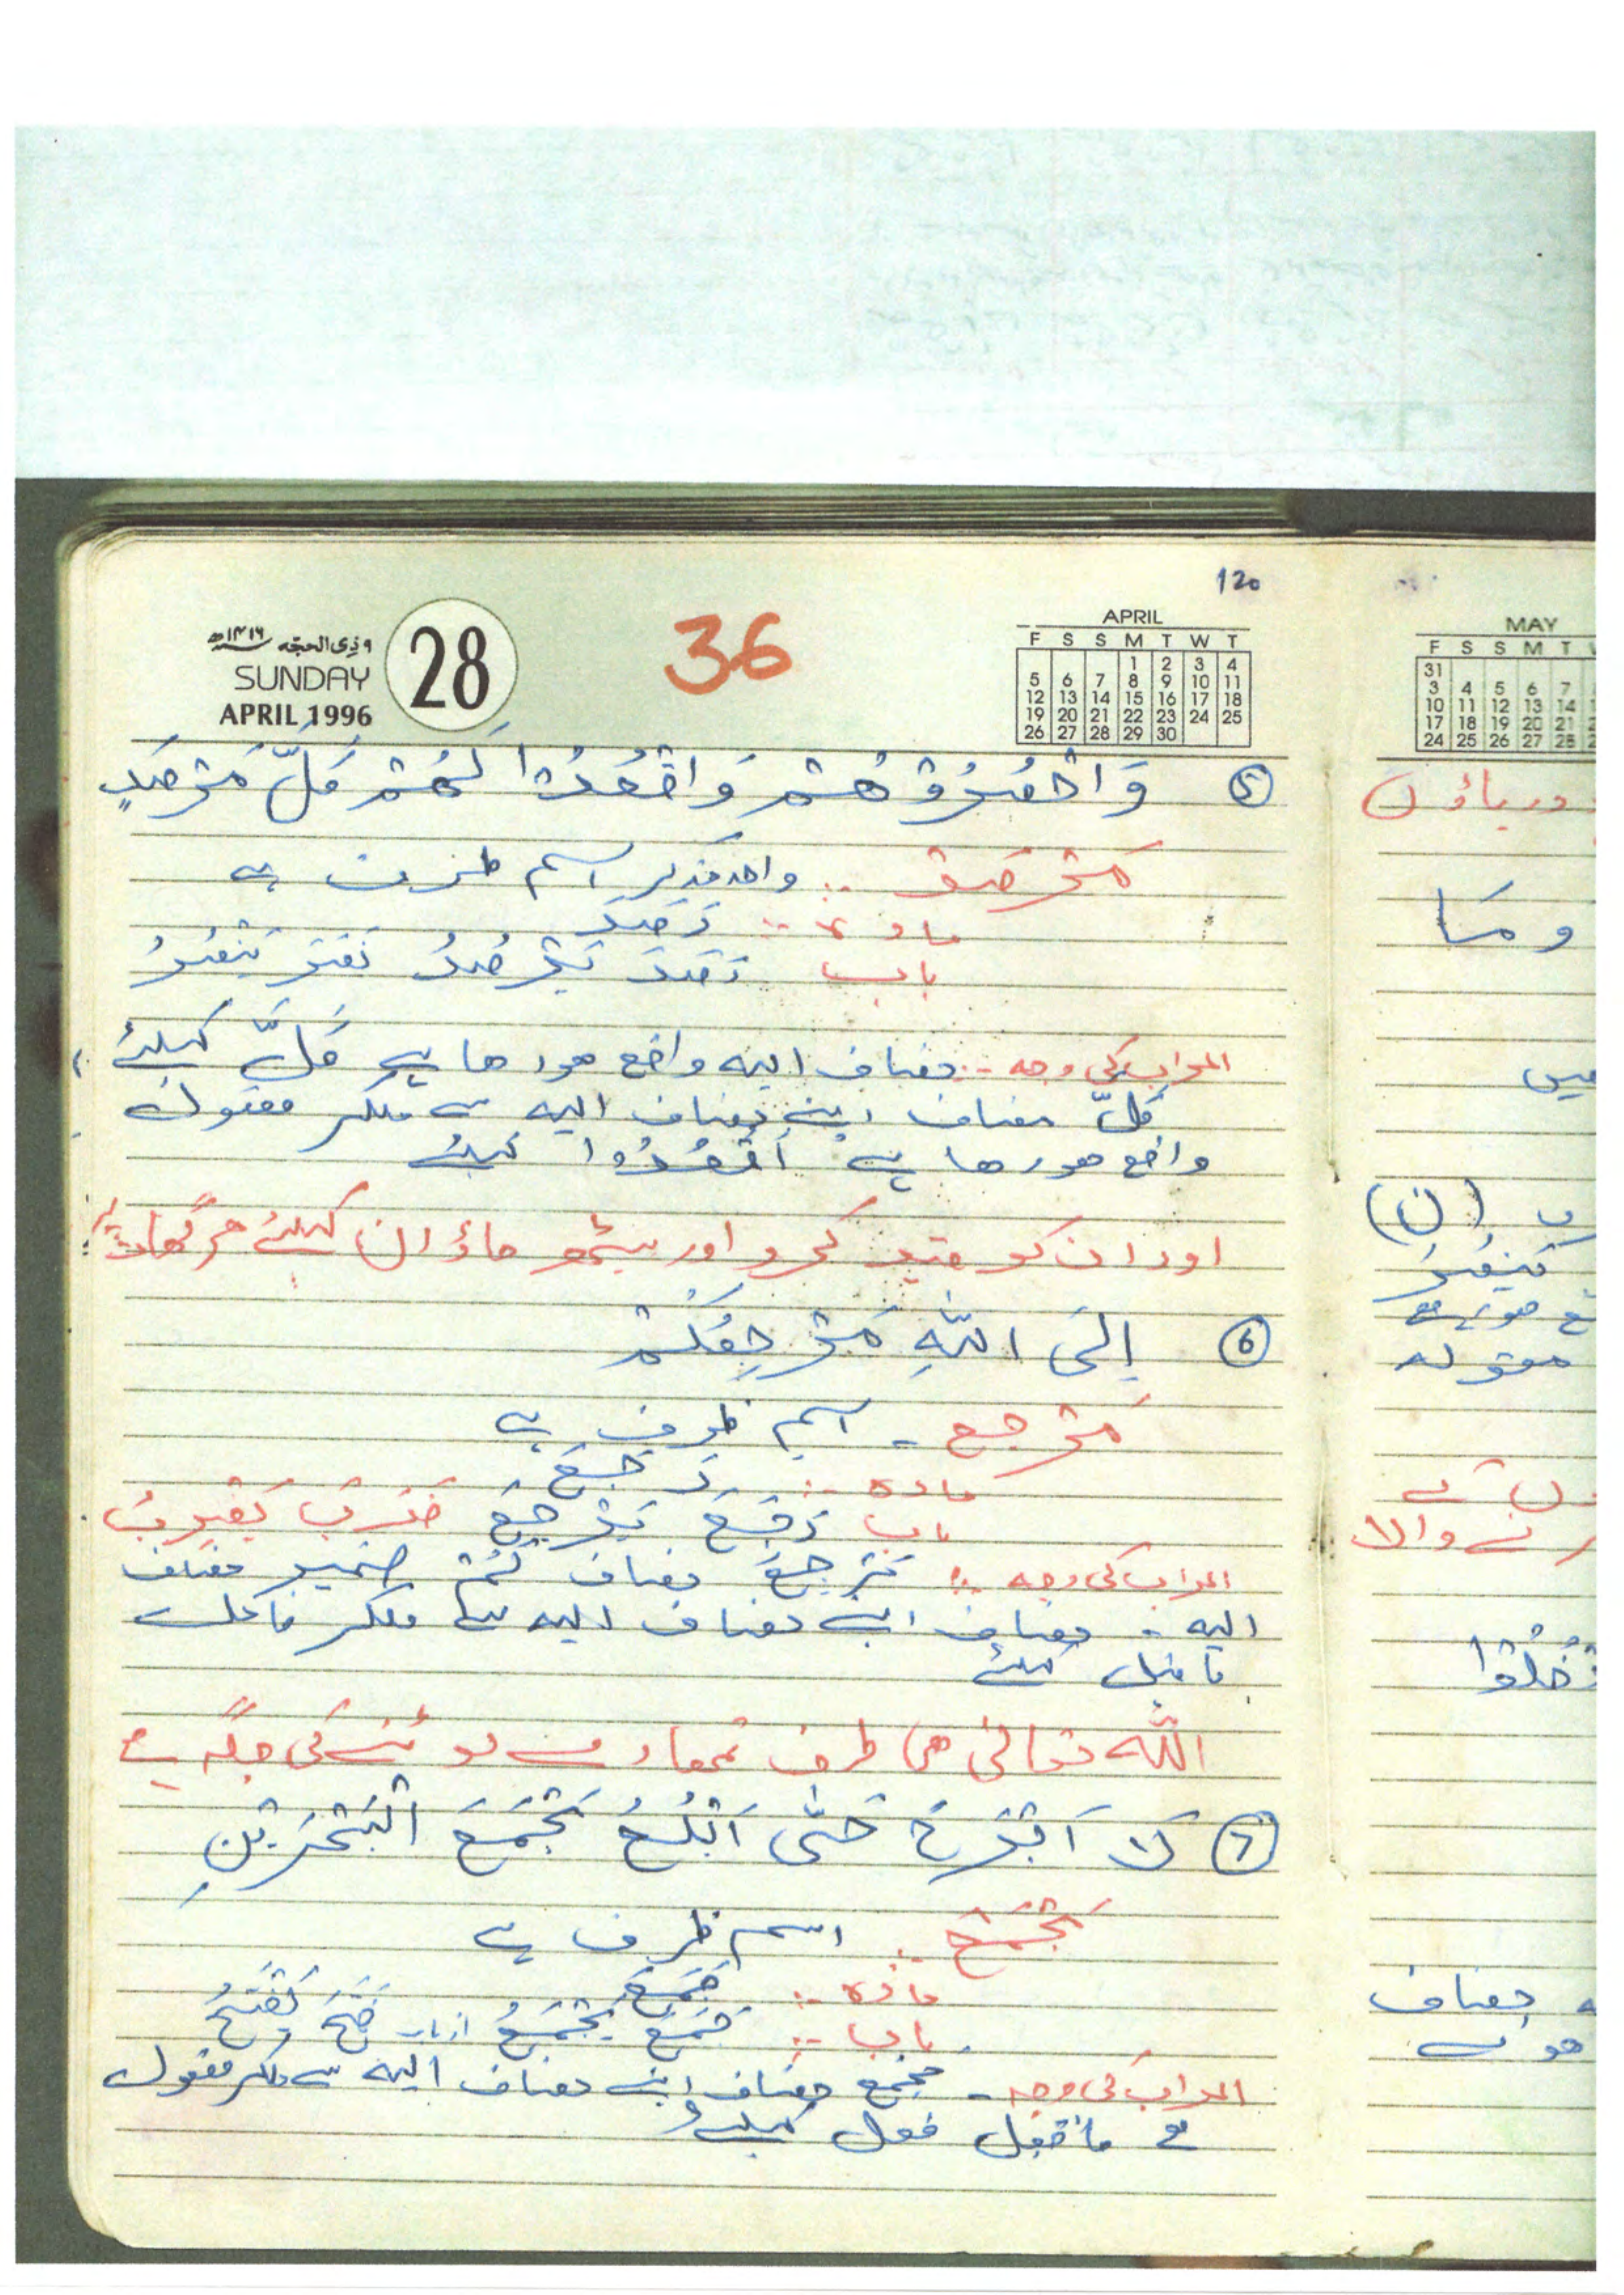 120
۹ ذی الحجّه ۱۴۱۶ھ
SUNDAY
APRIL 1996
28
36
APRIL
F S S M T W T
1 2 3 4
5 6 7 8 9 10 11
12 13 14 15 16 17 18
19 20 21 22 23 24 25
26 27 28 29 30
⑤ وَاحْصُرُوْهُمْ وَاقْعُدُوْا لَهُمْ كُلَّ مَرْصَدٍ
مَرْصَد :- واحد مذکر اسم ظرف ہے
مادہ :- رَصَدَ
باب رَصَدَ يَرْصُدُ نَصَرَ يَنْصُرُ
اعراب کی وجہ :- مضاف الیہ واقع ہورہا ہے كُلَّ کیلئے
كُلَّ مضاف اپنے مضاف الیہ سے ملکر مفعول
واقع ہورہا ہے اُقْعُدُوا کیلئے
اور ان کو قید کرو اور بیٹھ جاؤ ان کیلئے ہر گھات پر
⑥ اِلَى اللّٰهِ مَرْجِعُكُمْ
مَرْجِع - اسم ظرف ہے
مادہ :- رَجَعَ
باب رَجَعَ يَرْجِعُ ضَرَبَ يَضْرِبُ
اعراب کی وجہ :- مَرْجِعُ مضاف كُمْ ضمیر مضاف
الیہ - مضاف اپنے مضاف الیہ سے ملکر فاعل
ماقبل کیلئے
اللّٰہ تعالیٰ ہی طرف تمھارے لوٹنے کی جگہ ہے
⑦ لَا اَبْرَحُ حَتّٰى اَبْلُغَ مَجْمَعَ الْبَحْرَيْنِ
مَجْمَعَ :- اسم ظرف ہے
مادہ :- جَمَعَ
باب :- جَمَعَ يَجْمَعُ از باب فَتَحَ يَفْتَحُ
اعراب کی وجہ - مجمع مضاف اپنے مضاف الیہ سے ملکر مفعول
ہے ماقبل فعل کیلئے
MAY
F S S M T
31
3 4 5 6 7
10 11 12 13 14
17 18 19 20 21
24 25 26 27 28
دریاؤں
و مَا
میں
(ن)
يَنْصُرُ
مضاف